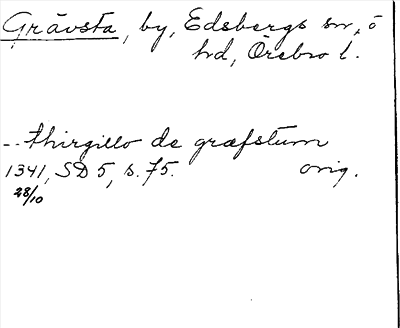 Grävsta, by, Edsbergs sn, ö
hd, Örebro l.
-- thirgillo de græfstum
1341, SD 5, s. 75. orig.
28/10